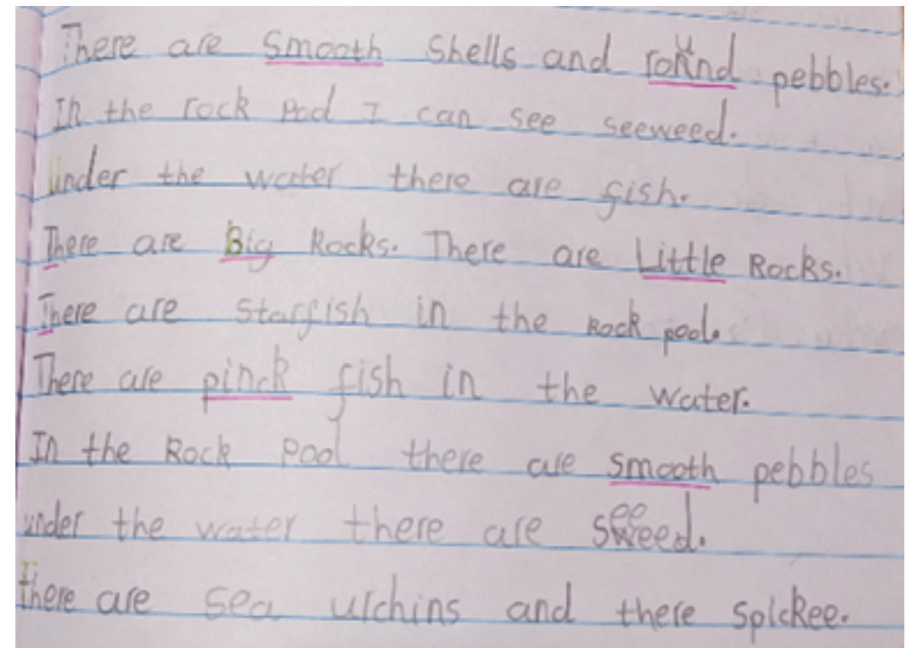 There are smooth shells and round pebbles.
In the rock pool I can see seeweed.
Under the water there are fish.
There are Big Rocks. There are Little Rocks.
There are starfish in the Rock pool.
There are pinck fish in the water.
In the Rock pool there are smooth pebbles
under the water there are seeweed.
there are sea urchins and there spickee.